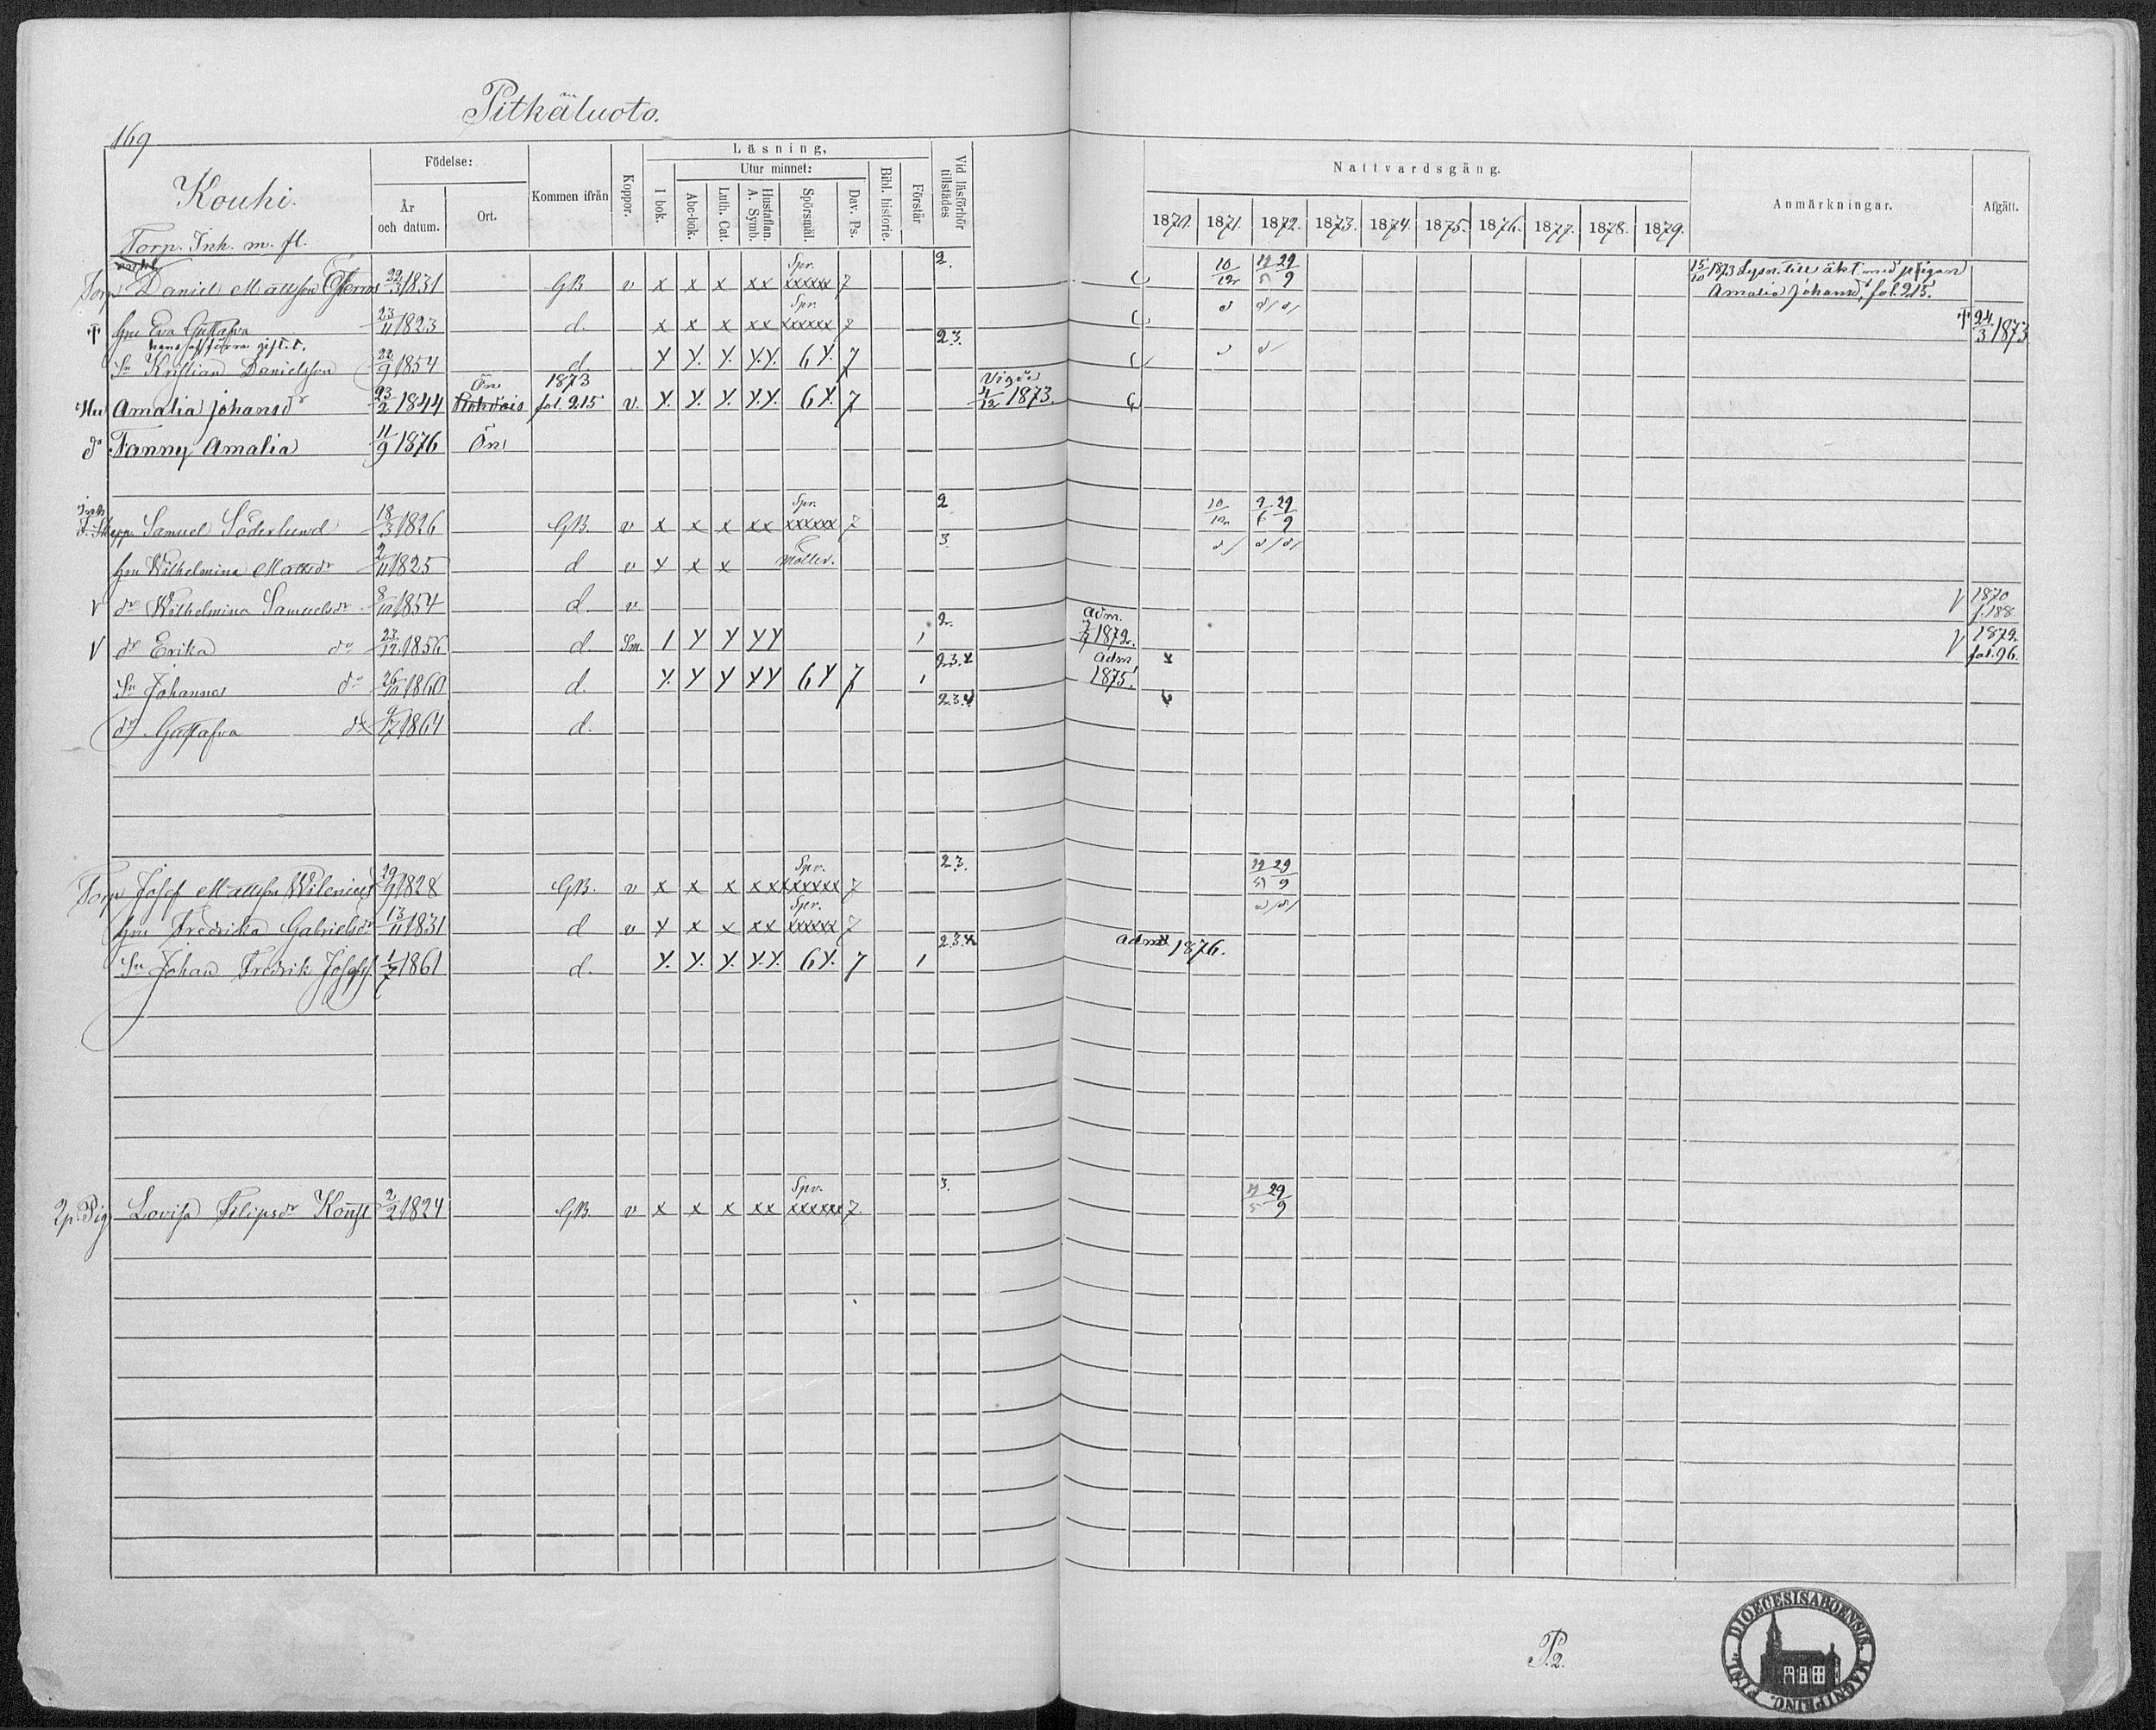 Pitkäluoto.
169
Kouhi.
Torp. Inh. m. fl.
Födelse:
År och datum.
Ort.
Kommen ifrån
Koppor.
Läsning,
I bok.
Utur minnet:
Abc-bok.
Luth. Cat.
Hustaflan. A. Symb.
Spörsmål.
Dav. Ps.
Bibl. historie.
Förstår
Vid läsförhör tillstädes
Nattvardsgång.
1870. 1871. 1872. 1873. 1874. 1875. 1876. 1877. 1878. 1879.
Anmärkningar.
Afgått.
Torp Daniel Mattsson 1831 GB v x x x xx Spr. xxxxxx 7 2. 10/12 29/9 15/10 1873 Lysn. till äkt. med pigan Amalia Johansdr, fol. 215.
† hu Eva Gustafva 23/11 1823 d. x x x xx Spr. xxxxxx 7 † 24/3 1873
hans af förra giftet.
Sn Kristian Danielsson 22/9 1854 d. Y Y. Y. Y.Y. 6Y. 7 23.
Hu Amalia Johansdr 23/2 1844 Ön 1873 fol. 215 v. Y. Y. Y. Y.Y. 6Y. 7 Vigde 4/12 1873.
dr Fanny Amalia 11/9 1876 Ön
Inh. Samuel Söderlund 18/3 1826 GB. v x x x xx Spr. xxxxxx 7 2 10/12 29/9
hu Wilhelmina Mattsdr 2/11 1825 d v Y x x 3.
V dr Wilhelmina Samuelsdr 8/10 1854 d. v V 1870 f. 188
V dr Erika do 27/12 1856 d. Sm. 1 Y Y YY 1 2. Adm. 1872. V 1872 fol. 96.
Sn Johannes do 26/10 1860 d. Y. Y Y YY 6Y 7 1 2.3.4 Adm 1875.
dr Gustafva 1864 d. 2.3.4
Torp Josef Mattsson Wilenius 29/9 1828 GB. v x x x xx Spr. xxxxxx 7 23. 29/9
hu Fredrika Gabrielsdr 13/11 1831 d v Y x x xx Spr. xxxxxx 7
Sn Johan Fredrik Josefss 1/7 1861 d. Y. Y. Y. Y.Y. 6Y. 7 1 2.3.4 adm 1876.
Pig Lovisa Filipsdr 2/2 1824 GB. v x x x xx Spr. xxxxxx 7. 3. 29/9
P.2.
DIOECESIS ABOENSIS. MAGNI PRINC. FINL.